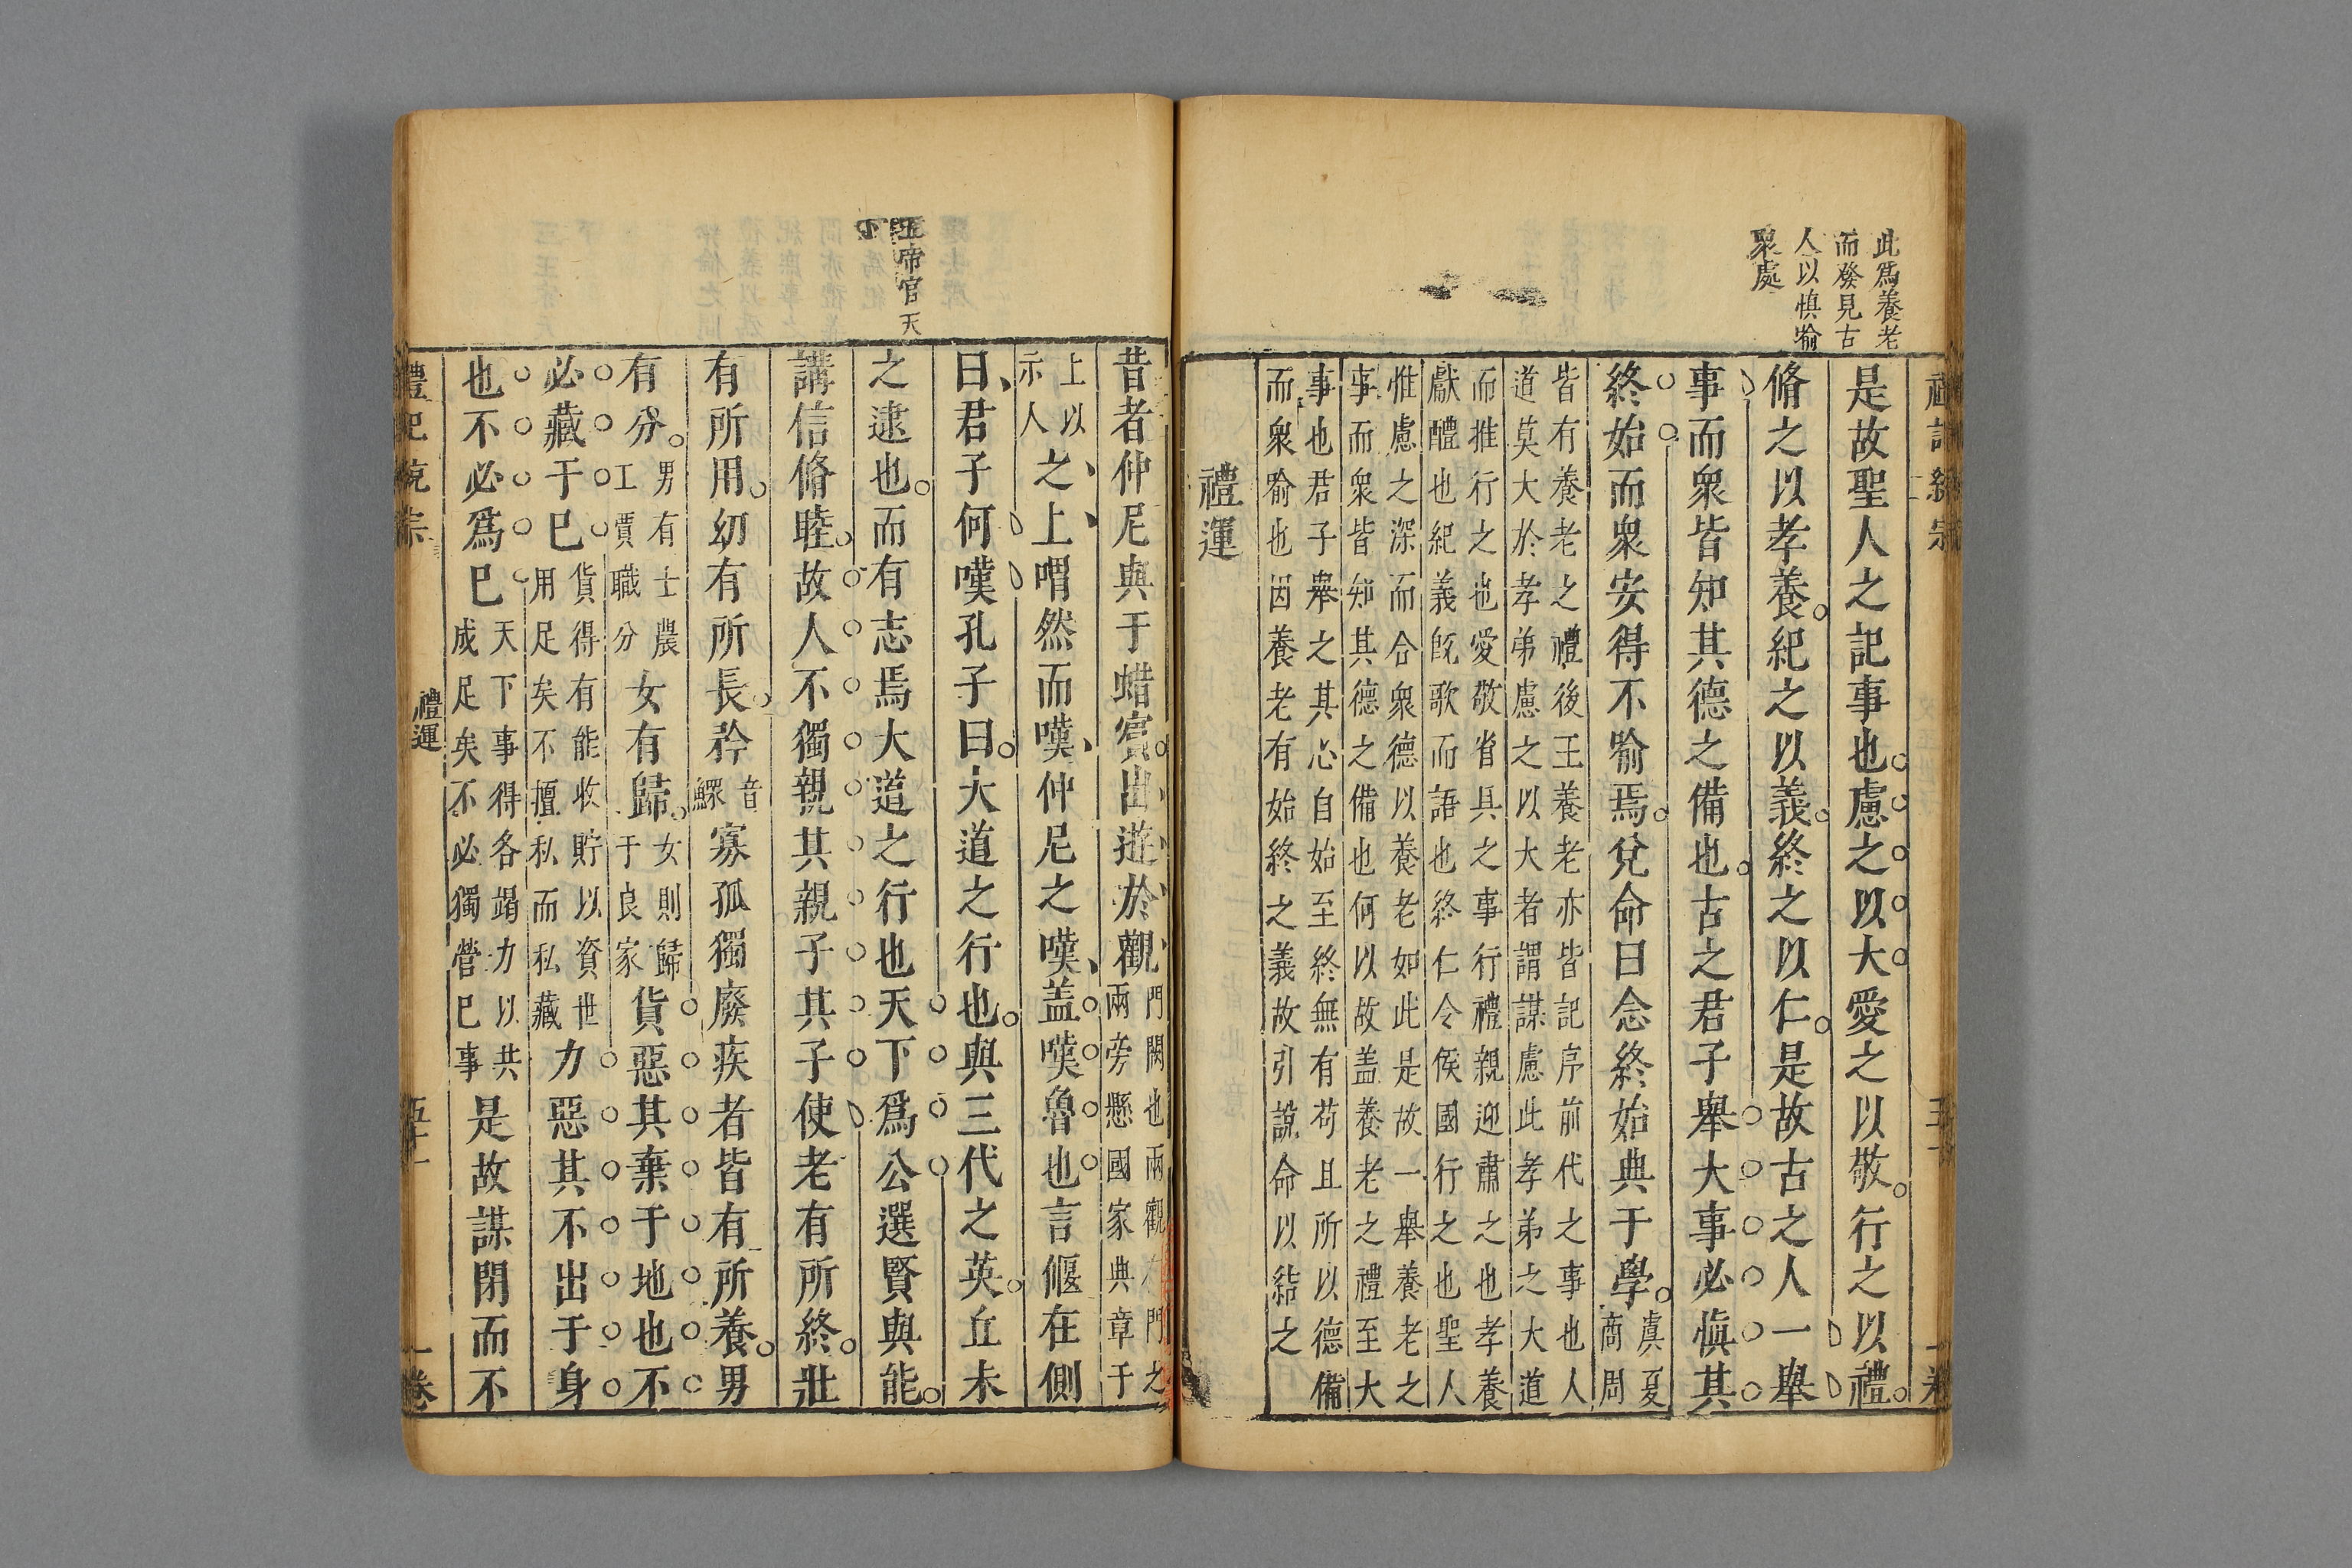 此爲養老
而發見古
人以慎喻
衆處
是故聖人之記事也慮之以大愛之以敬行之以禮
脩之以孝養紀之以義終之以仁是故古之人一舉
事而衆皆知其德之備也古之君子舉大事必慎其
終始而衆安得不喻焉兌命曰念終始典于學虞夏
商周
皆有養老之禮後王養老亦皆記序前代之事也人
道莫大於孝弟慮之以大者謂謀慮此孝弟之大道
而推行之也愛敬省具之事行禮親迎肅之也孝養
獻醴也紀義旣歌而語也終仁令侯國行之也聖人
惟慮之深而合衆德以養老如此是故一舉養老之
事而衆皆知其德之備也何以故盖養老之禮至大
事也君子舉之其心自始至終無有苟且所以德備
而衆喻也因養老有始終之義故引說命以結之
禮運
五帝官天
下
昔者仲尼與于蜡賓出遊於觀門闕也兩觀 門之
兩旁懸國家典章于
上以
示人之上喟然而嘆仲尼之嘆盖嘆魯也言偃在側
曰君子何嘆孔子曰大道之行也與三代之英丘未
之逮也而有志焉大道之行也天下爲公選賢與能
講信脩睦故人不獨親其親子其子使老有所終壯
有所用幼有所長矜音
鰥寡孤獨廢疾者皆有所養男
有分男有士農
工賈職分女有歸女則歸
于良家貨惡其棄于地也不
必藏于已貨得有能收貯以資世
用足矣不擅私而私藏力惡其不出于身
也不必爲已天下事得各竭力以共
成足矣不必獨營已事是故謀閉而不
禮運